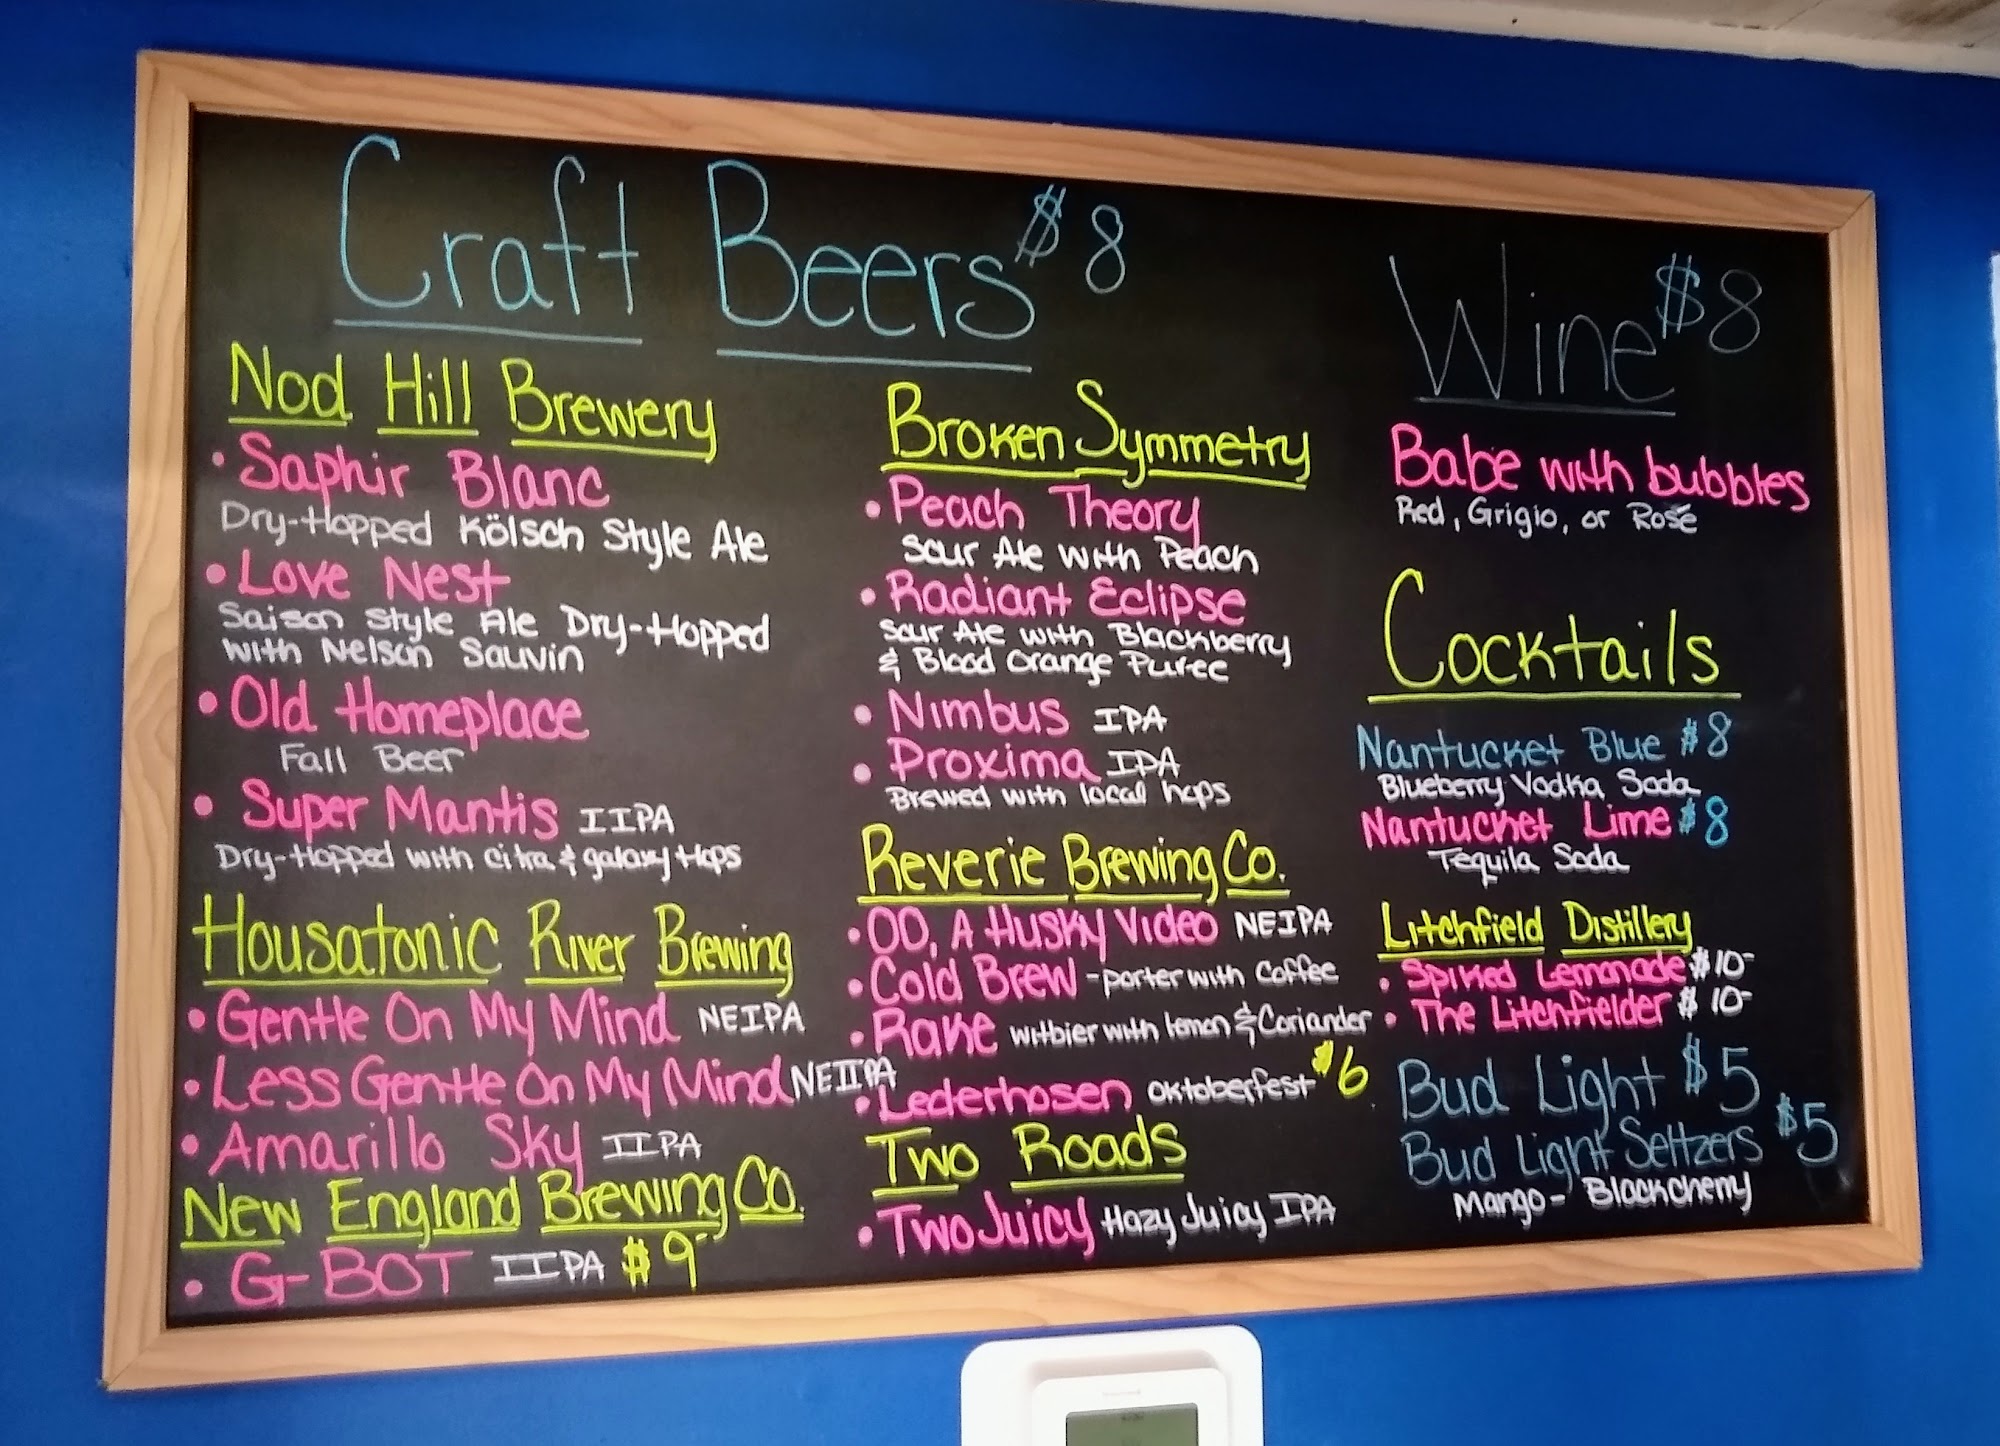 Craft Beers $8
Nod Hill Brewery
• Saphir Blanc
Dry-Hopped Kölsch Style Ale
• Love Nest
Saison Style Ale Dry-Hopped
with Nelson Sauvin
• Old Homeplace
Fall Beer
• Super Mantis IIPA
Dry-Hopped with citra & galaxy Hops
Housatonic River Brewing
• Gentle On My Mind NEIPA
• Less Gentle On My Mind NEIIPA
• Amarillo Sky IIPA
New England Brewing Co.
• G-BOT IIPA $9
Broken Symmetry
• Peach Theory
Sour Ale with Peach
• Radiant Eclipse
Sour Ale with Blackberry
& Blood Orange Puree
• Nimbus IPA
• Proxima IPA
Brewed with local hops
Reverie Brewing Co.
• OO, A Husky Video NEIPA
• Cold Brew - porter with Coffee
• Rake witbier with lemon & Coriander
• Lederhosen Oktoberfest $6
Two Roads
• Two Juicy Hazy Juicy IPA
Wine $8
Babe with bubbles
Red, Grigio, or Rosé
Cocktails
Nantucket Blue $8
Blueberry Vodka Soda
Nantucket Lime $8
Tequila Soda
Litchfield Distillery
• Spiked Lemonade $10-
• The Litchfielder $10-
Bud Light $5
Bud Light Seltzers $5
Mango - Blackcherry